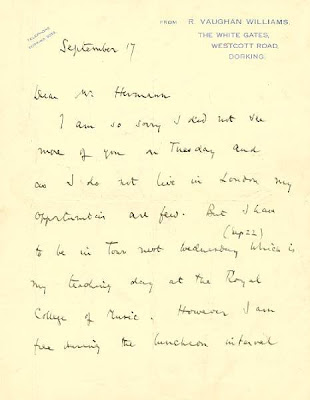 FROM R. VAUGHAN WILLIAMS,
THE WHITE GATES,
WESTCOTT ROAD,
DORKING.
TELEPHONE
DORKING
September 17
Dear Mr Herrmann
I am so sorry I did not see
more of you on Tuesday and
as I do not live in London my
opportunities are few. But I have
(Sep 22)
to be in Town next Wednesday which is
my teaching day at the Royal
College of Music. However I am
free during the luncheon interval